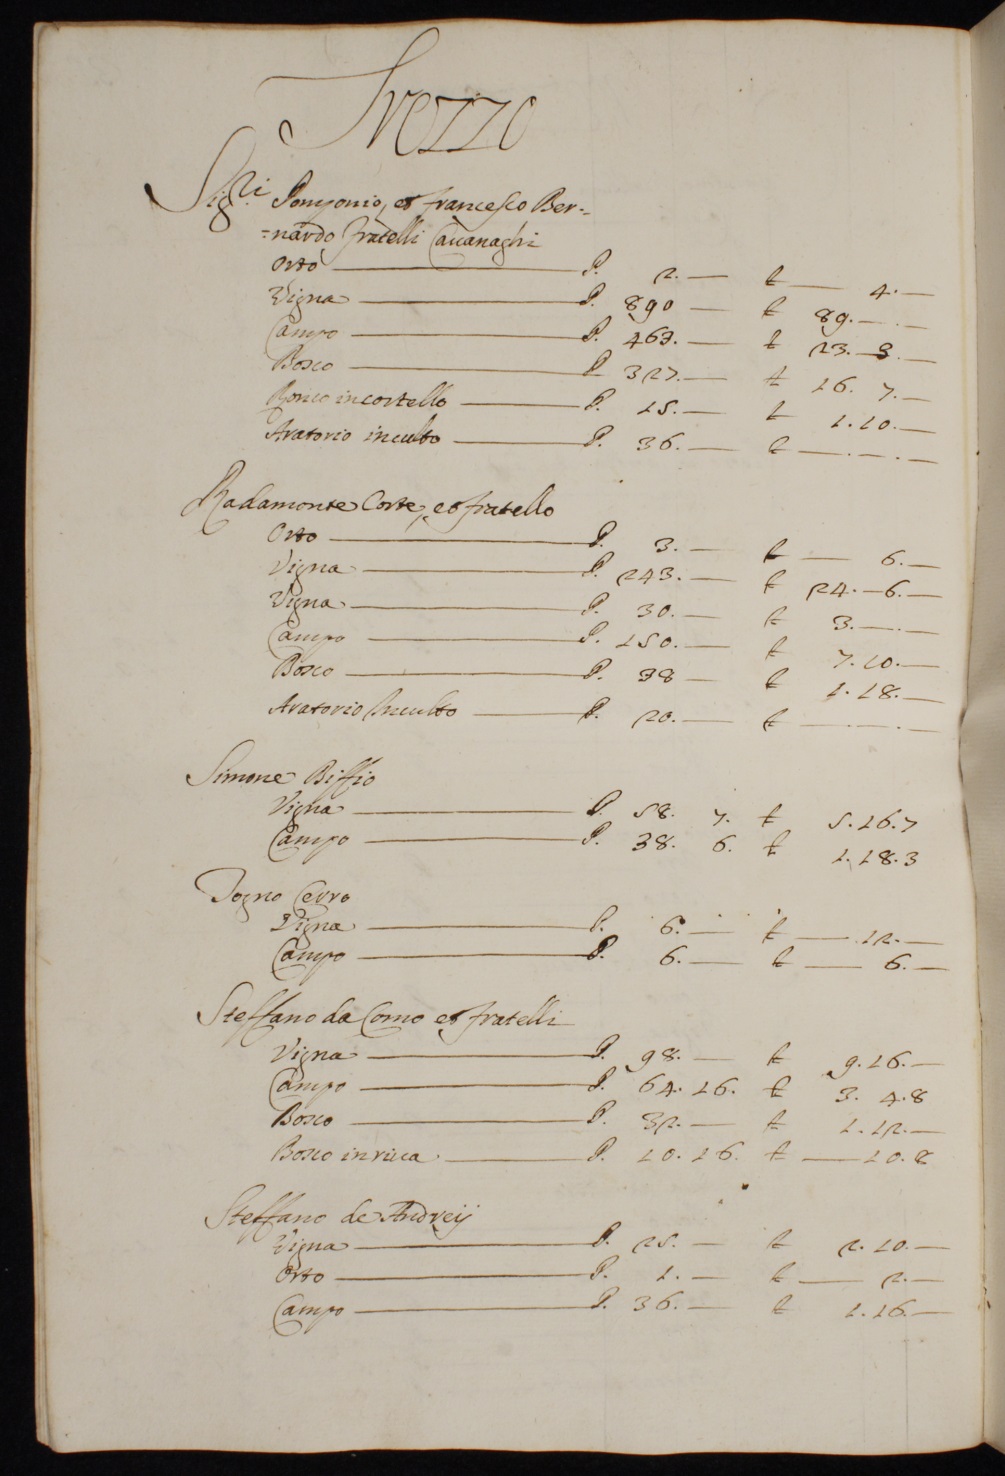 Trezzo
Sig.ri Pomponio, et francesco Ber-
-nardo fratelli Cavanaghi
Orto — P. 2. — £ — 4. —
Vigna — P. 890 — £ 89. — . —
Campo — P. 463. — £ 23. 3. —
Bosco — P 327. — £ 16. 7. —
Ronco in costello — P. 15. — £ 1. 10. —
Aratorio inculto — P. 36. — £ — . — . —
Radamonte Corte, et fratello
Orto — P. 3. — £ — 6. —
Vigna — P. 243. — £ 24. — 6. —
Vigna — P. 30. — £ 3. — . —
Campo — P. 150. — £ 7. 10. —
Bosco — P. 38 — £ 1. 18. —
Aratorio Inculto — P. 20. — £ — . — . —
Simone Biffio
Vigna — P. 58. 7. £ 5. 16. 7
Campo — P. 38. 6. £ 1. 18. 3
Togno Cerro
Vigna — P. 6. — £ — 12. —
Campo — P. 6. — £ — 6. —
Steffano da Como et fratelli
Vigna — P. 98. — £ 9. 16. —
Campo — P. 64. 16. £ 3. 4. 8
Bosco — P. 32. — £ 1. 12. —
Bosco in riva — P. 10. 16. £ — 10. 8
Steffano de Andreij
Vigna — P. 25. — £ 2. 10. —
Orto — P. 1. — £ — 2. —
Campo — P. 36. — £ 1. 16. —